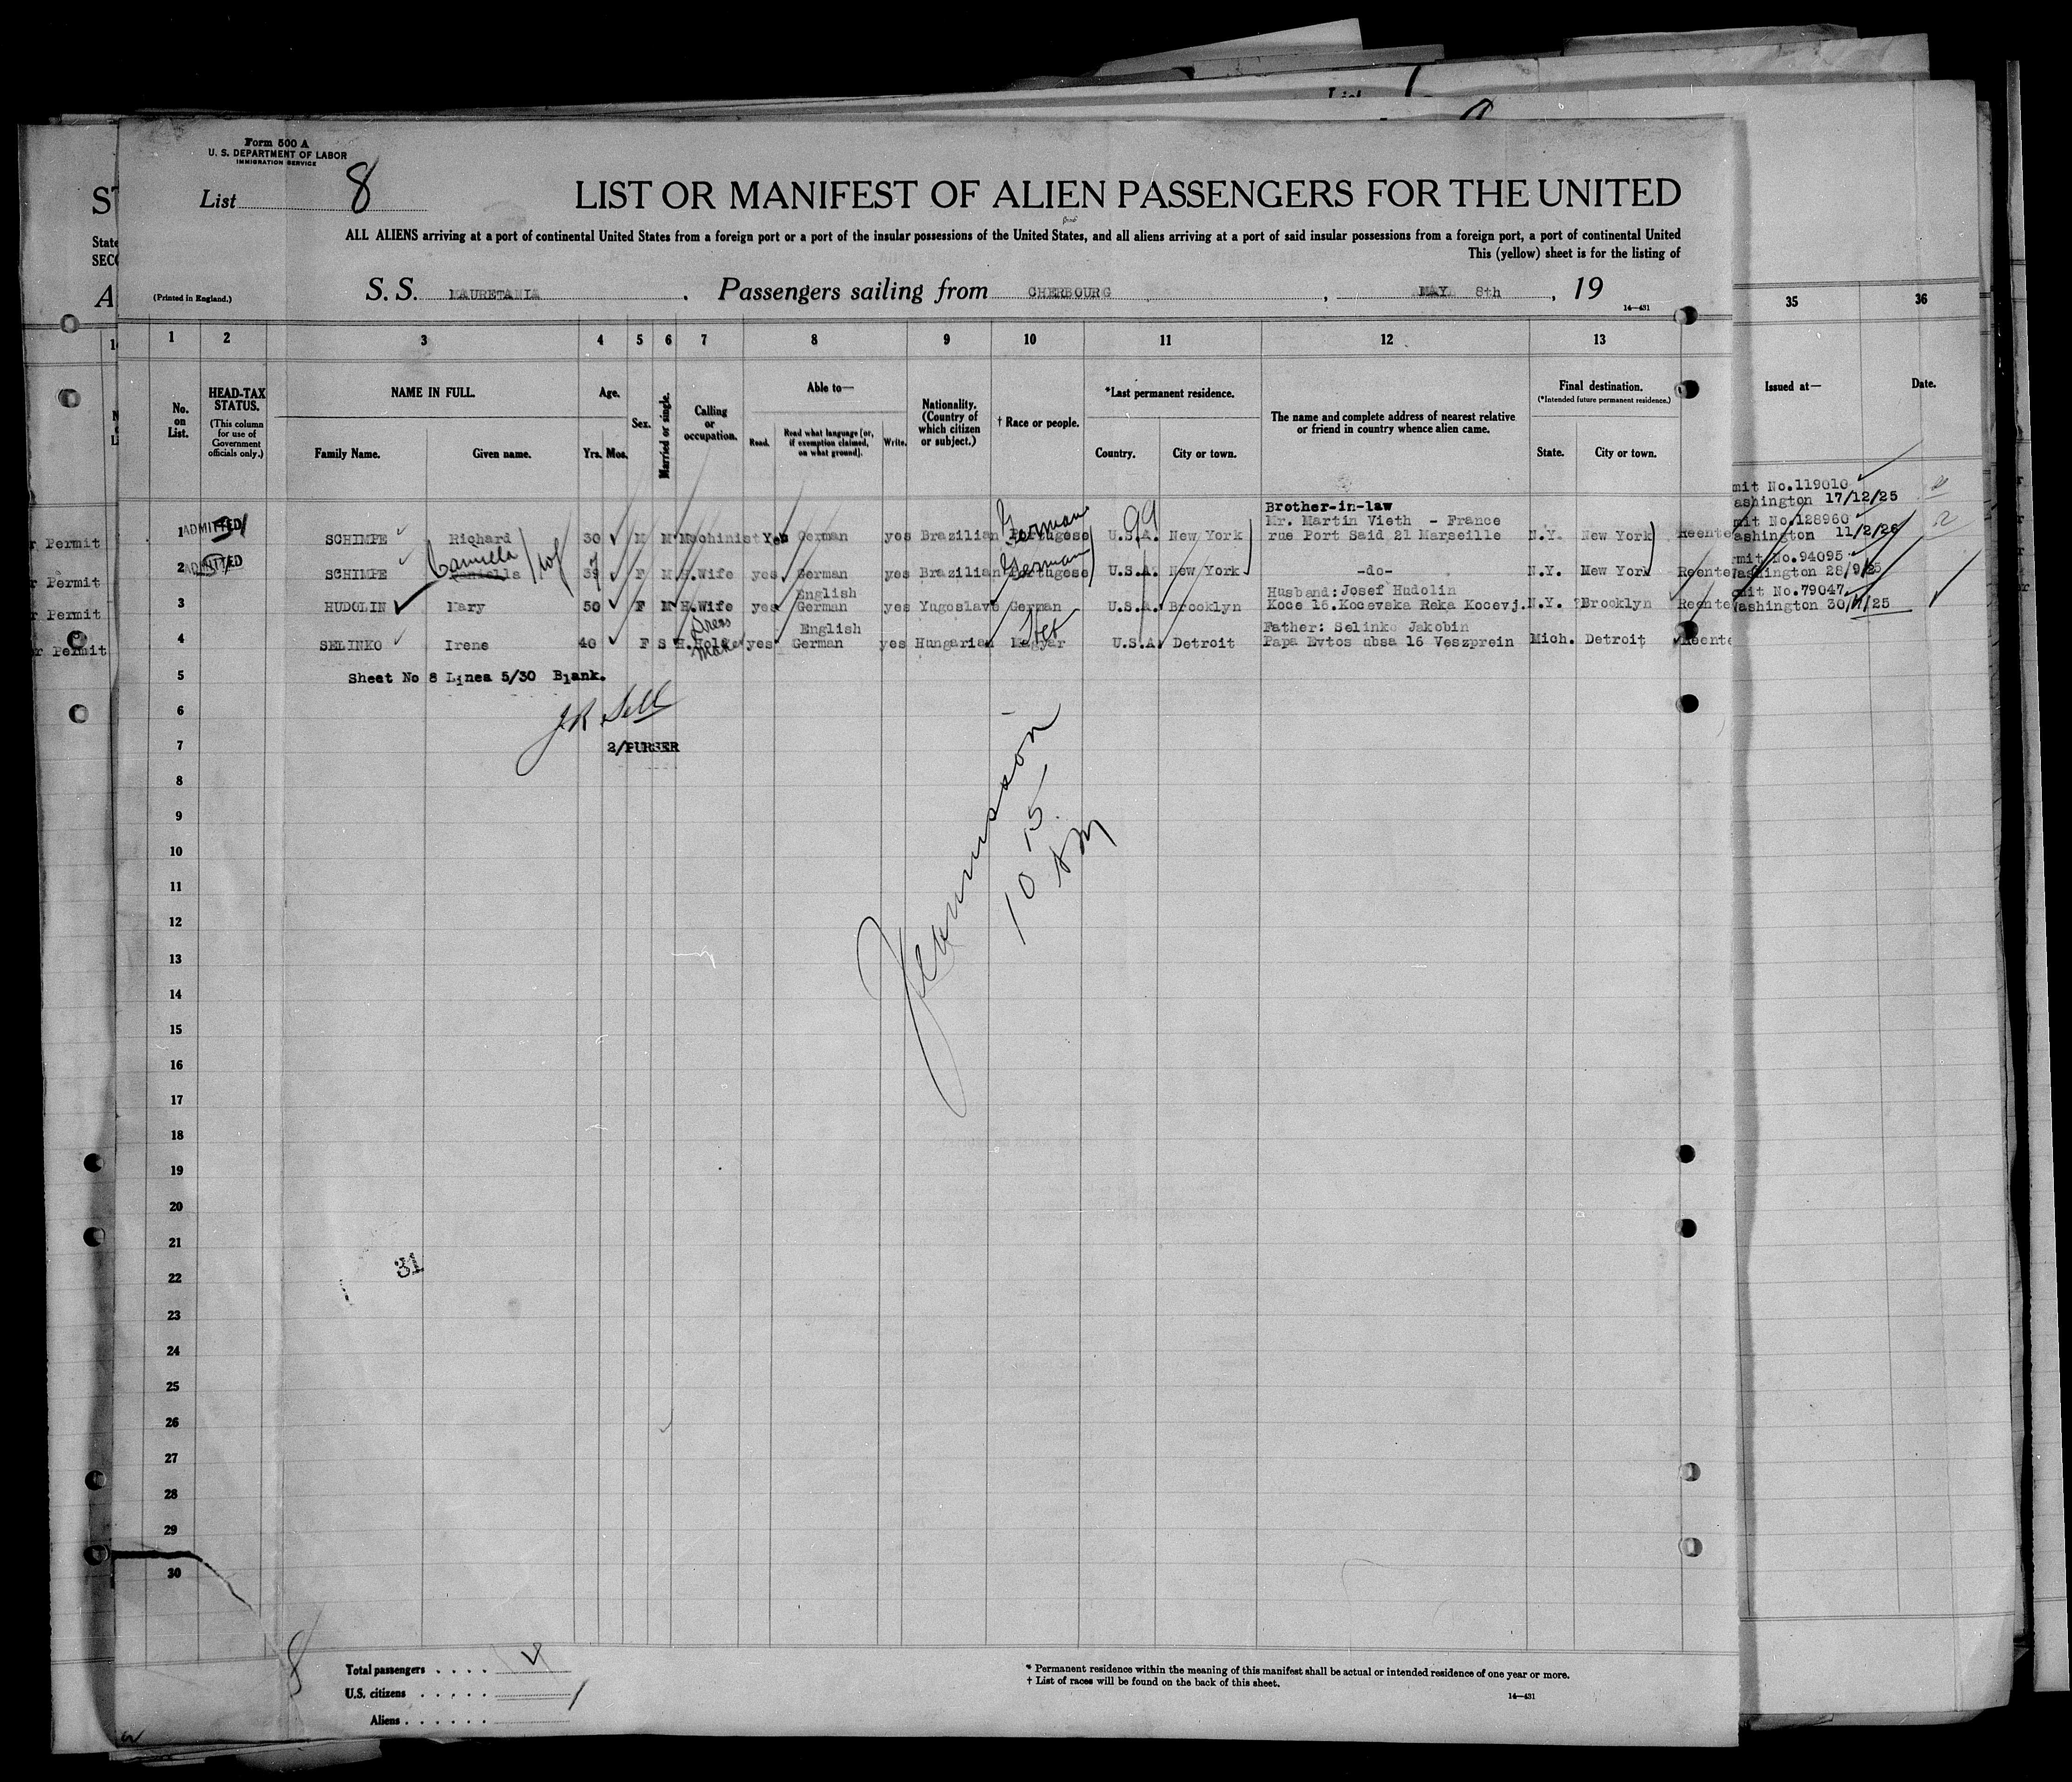 Form 500 A
U. S. DEPARTMENT OF LABOR
IMMIGRATION SERVICE
List 8
LIST OR MANIFEST OF ALIEN PASSENGERS FOR THE UNITED
ALL ALIENS arriving at a port of continental United States from a foreign port or a port of the insular possessions of the United States, and all aliens arriving at a port of said insular possessions from a foreign port, a port of continental United
This (yellow) sheet is for the listing of
(Printed in England.)
S. S. MAURETANIA . Passengers sailing from CHERBOURG , MAY 8th , 19
14—431
1 2 3 4 5 6 7 8 9 10 11 12 13 35 36
No. on List.
HEAD-TAX STATUS.
(This column for use of Government officials only.)
NAME IN FULL.
Family Name. Given name.
Age.
Yrs. Mos.
Sex.
Married or single.
Calling or occupation.
Able to—
Read. Read what language [or, if exemption claimed, on what ground]. Write.
Nationality. (Country of which citizen or subject.)
† Race or people.
*Last permanent residence.
Country. City or town.
The name and complete address of nearest relative or friend in country whence alien came.
Final destination.
(*Intended future permanent residence.)
State. City or town.
Issued at— Date.
mit No.119010
ashington 17/12/25
Brother-in-law
German 99 Mr. Martin Vieth - France mit No.128960
1 ADMITTED SCHIMPE Richard 30 M M Machinist Yes German yes Brazilian Portugese U.S.A. New York rue Port Said 21 Marseille N.Y. New York Reente ashington 11/2/26
Camilla German mit No.94095
2 ADMITTED SCHIMPE 39 F M H.Wife yes German yes Brazilian Portugese U.S.A. New York -do- N.Y. New York Reente Washington 28/9/25
English Husband: Josef Hudolin mit No.79047
3 HUDOLIN Mary 50 F M H.Wife yes German yes Yugoslave German U.S.A. Brooklyn Koce 16.Kocevska Reka Kocevj. N.Y. Brooklyn Reente Washington 30/7/25
Dress English Father: Selinko Jakobin
4 SELINKO Irene 40 F S H.Hold yes German yes Hungarian Magyar U.S.A. Detroit Papa Evtos ubsa 16 Veszprein Mich. Detroit Reente
maker
r Permit
r Permit
r Permit
r Permit
5 Sheet No 8 Linea 5/30 Blank.
6
7 2/PURSER
8
9
10
11
12
13
14
15
16
17
18
19
20
21
22
23
24
25
26
27
28
29
30
10 15 AM
31
8
Total passengers . . . .
U.S. citizens . . . . .
Aliens . . . . . .
* Permanent residence within the meaning of this manifest shall be actual or intended residence of one year or more.
† List of races will be found on the back of this sheet.
14—431